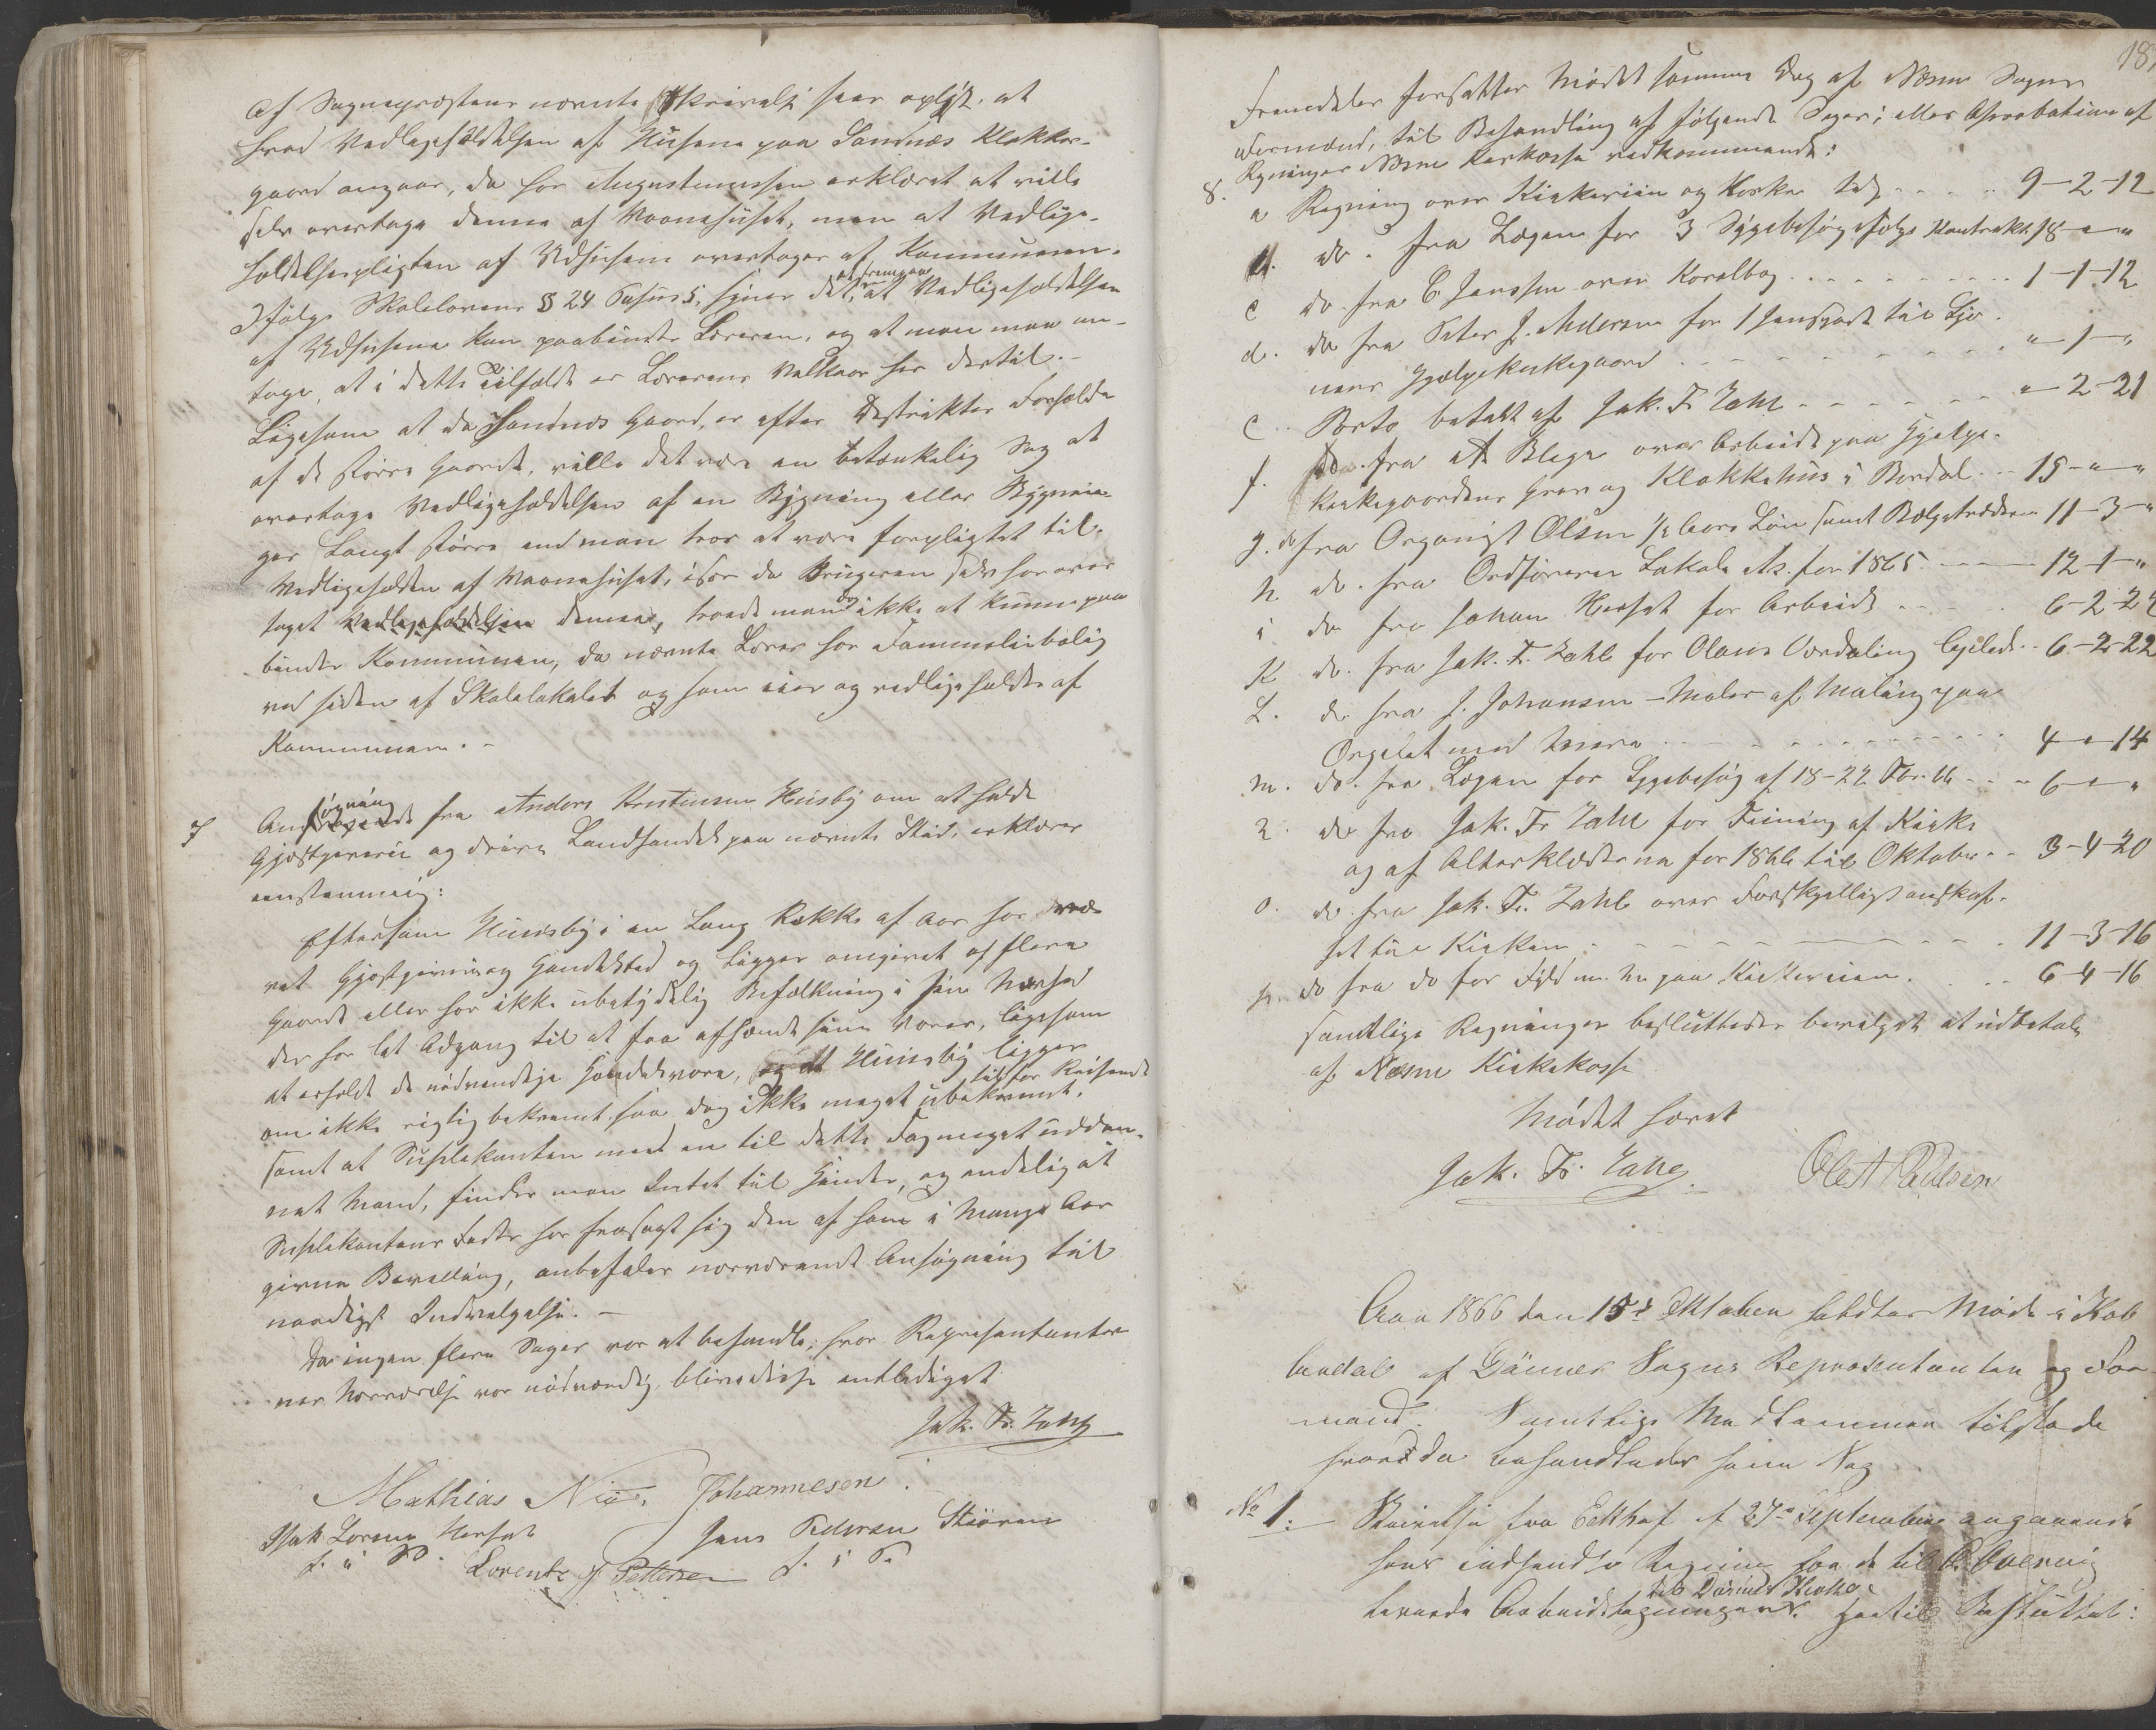 Af Sognepræstens nævnte Skrivelse sees oplyst, at
hvad Vedligeholdelsen af Husene paa Sandnæs Klokker-
gaard angaar, da har Augustinussen erklæret at ville
selv overtage denne af Vaanehuset, men at Vedlige-
holdelsespligten af Udhusene overtages af Kommunen.
Ifølge Skolelovens § 24 Passus 5, synes det, at fremgaa at Vedligeholdelsen
af Udhusene kan paabindes Læreren, og at man maa an-
tage, at i dette Tilfælde er Lærerens Vilkaar her dertil.-
Ligesom at da Sandnæs Gaard, er efter Distriktets Forholde
af de større Gaarde, ville det være en betænkelig Sag at
overtage Vedligeholdelsen af en Bygning eller Bygnin-
ger Langt større end man tror at være forpligtet til.
Vedligeholden af Vaanehuset, især da Brugeren selv har over
taget Vedligeholdelsen denne, troede man dog ikke at kunne paa
binde Kommunen, da nævnte Lærer har Familiebolig
ved siden af Skolelokalet og som eies og vedligeholdes af
Kommunen. -
7 Ansøgning fra Anders Kristensen Huusby om at holde
Gjæstgiveri og drive Landhandel paa nævnte Sted, erklæres
eenstemmig:
Eftersom Huusby i en Lang Række af Aar har væ-
ret Gjæstgiveri og Handelsted og Ligger omgivet af flere
Gaarde eller har ikke ubetydelig Befolkning i sin Nærhed
der har let Adgang til at faa afhændt sine Varer, ligesom
at erholde de nødvendige Handelsvare, og at Huusby ligger
om ikke rigtig bekvemt saa dog ikke meget ubekvemt, til for Reisende
samt at Suplikanten med en til dette Fag meget uddan-
net Mand, finder man Intet til Hinder, og endelig at
Suplikantens Fader har frasagt sig den af ham i Mange Aar
givne Bevilling, anbefales nærværende Ansøgning til
naadigst Indvilgelse. -
Da ingen flere Sager var at behandle, hvor Repræsentanter
nes Nærværelse var nødvendig, blev disse entlediget
Jak. Fr. Zahl
Mathias Johannesen
Isak Lorens Horset Jens Pedersen Støren
f. i P. Lorents J. Pettersen f. i P.
187
Fremdeles forsattes Mødet samme Dag af Næsne Sogns
Formænd, til Behandling af følgende Sager; eller Aprobation af
Regninger Næsne Kirkkasse vedkommende:
8. a Regning over Kirkeviin og Kirke 9-2-12
do. fra Lægen for 3 Sygebesøg ifølge Kontrakt 18 - " - "
c do fra C Jenssen over Koralbog 1-1-12
d. do fra Peter J. Andersen for 1 Jernspade til
nens Hjælpekirkegaard " - 1 - "
e. Porto betalt af Jak. Fr Zahl " - 2-21
f. do. fra A Blege over Arbeide paa Hjælpe-
kirkegaardens Grav og Klokkehus i 15 - " - "
g. do fra Organist Olsen 1/2 Aars Løn samt Bælgetræden 11-3-"
h. do. fra Ordføreren Lokale for 1865 12-1-"
i do fra Johan Horset for Arbeide 6-2-2
K do. fra Jak. Fr. Zahl for Olaus 6-2-22
L. do fra J. Johansen - Maler af Maling paa
Orgelet med mere 4 - " - 14
m. do. fra Lægen for Sygebesøg af 18-22 6 - " - "
n. do fra Jak. Fr Zahl for Feining af Kirke
og af Alterklæderne for 1866 til Oktober 3-4-20
o. do fra Jak. Fr. Zahl over Forskjelligt anskaf-
fet til Kirken 11-3-16
p. do fra do for 6-4-16
samtlige Regninger besluttedes bevilget at udbetales
af Næsne Kirkekasse
Mødet hævet
Jak. Fr. Zahl Ole A Paulsen
Aar 1866 den 15de Oktober holdtes Møde i Kob
berdal af Dønnes Sogns Repræsentanter og For-
mænd. Samtlige Medlemmer tilstæde
hvor da behandledes som Sag
No 1: Skrivelse fra af 27de September angaaende
hans indsendte Regning til
leverede Arbeidstegninger til Dønnes Kirke. Hertil Besluttet: